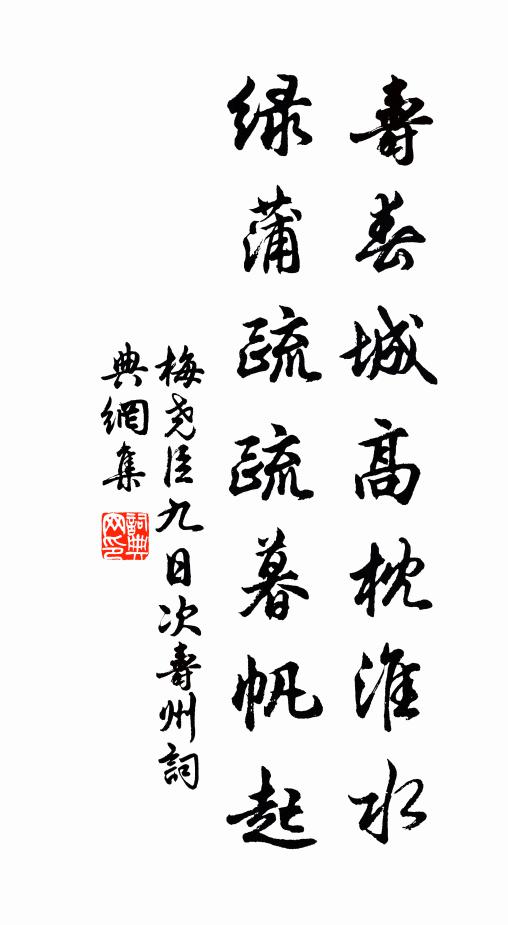 壽春城高枕淮水
緑蒲疏疏暮帆起
梅堯臣九日次壽州詞
典網集
詞典網印